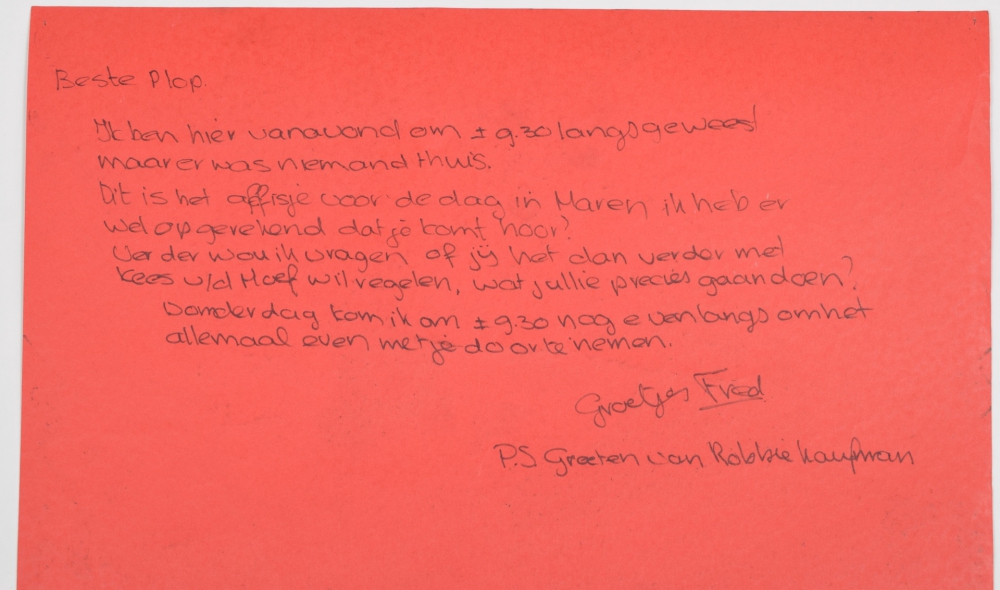 Beste Plop.
Ik ben hier vanavond om ± 9.30 langs geweest
maar er was niemand thuis.
Dit is het affisje voor de dag in Maren ik heb er
wel op gerekend dat je komt hoor?
Verder wou ik vragen of jij het dan verder met
Kees v/d Hoef wil regelen, wat jullie precies gaan doen?
Donderdag kom ik om ± 9.30 nog even langs om het
allemaal even met je door te nemen.
Groetjes Fred
P.S Groeten van Robbie Kaufman